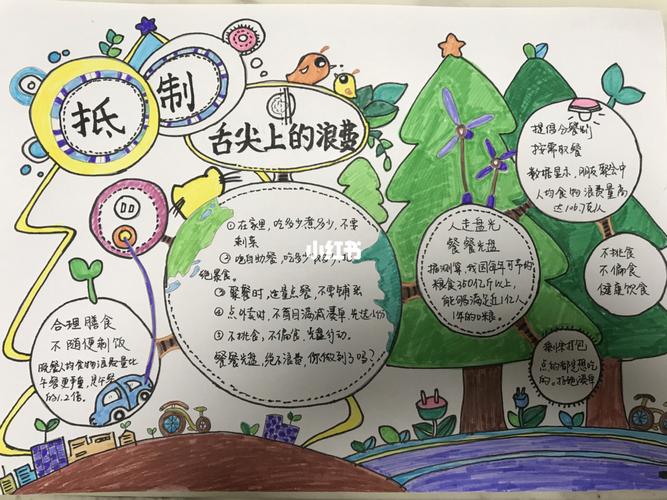 抵制
舌尖上的浪费
①在家里,吃多少煮多少,不要
剩菜
②吃自助餐,吃多少
绝暴食。
③聚餐时,适量点餐,不要铺张
④点外卖时,不盲目满减凑单
⑤不挑食,不偏食,光盘行动。
餐餐光盘,绝不浪费,你做到了吗?
小红书
合理膳食
不随便剩饭
晚餐人均食物浪费量比
午餐更重,是午餐
的1.2倍。
人走盘光
餐餐光盘
据测算,我国每年可节约
粮食350亿斤以上,
能够满足近1亿人
1年的口粮。
提倡分餐制
按需取餐
数据显示,朋友聚会中
人均食物浪费量高
达106.7克/人
不挑食
不偏食
健康饮食
剩余打包
点的都是想吃
的。拒绝凑单